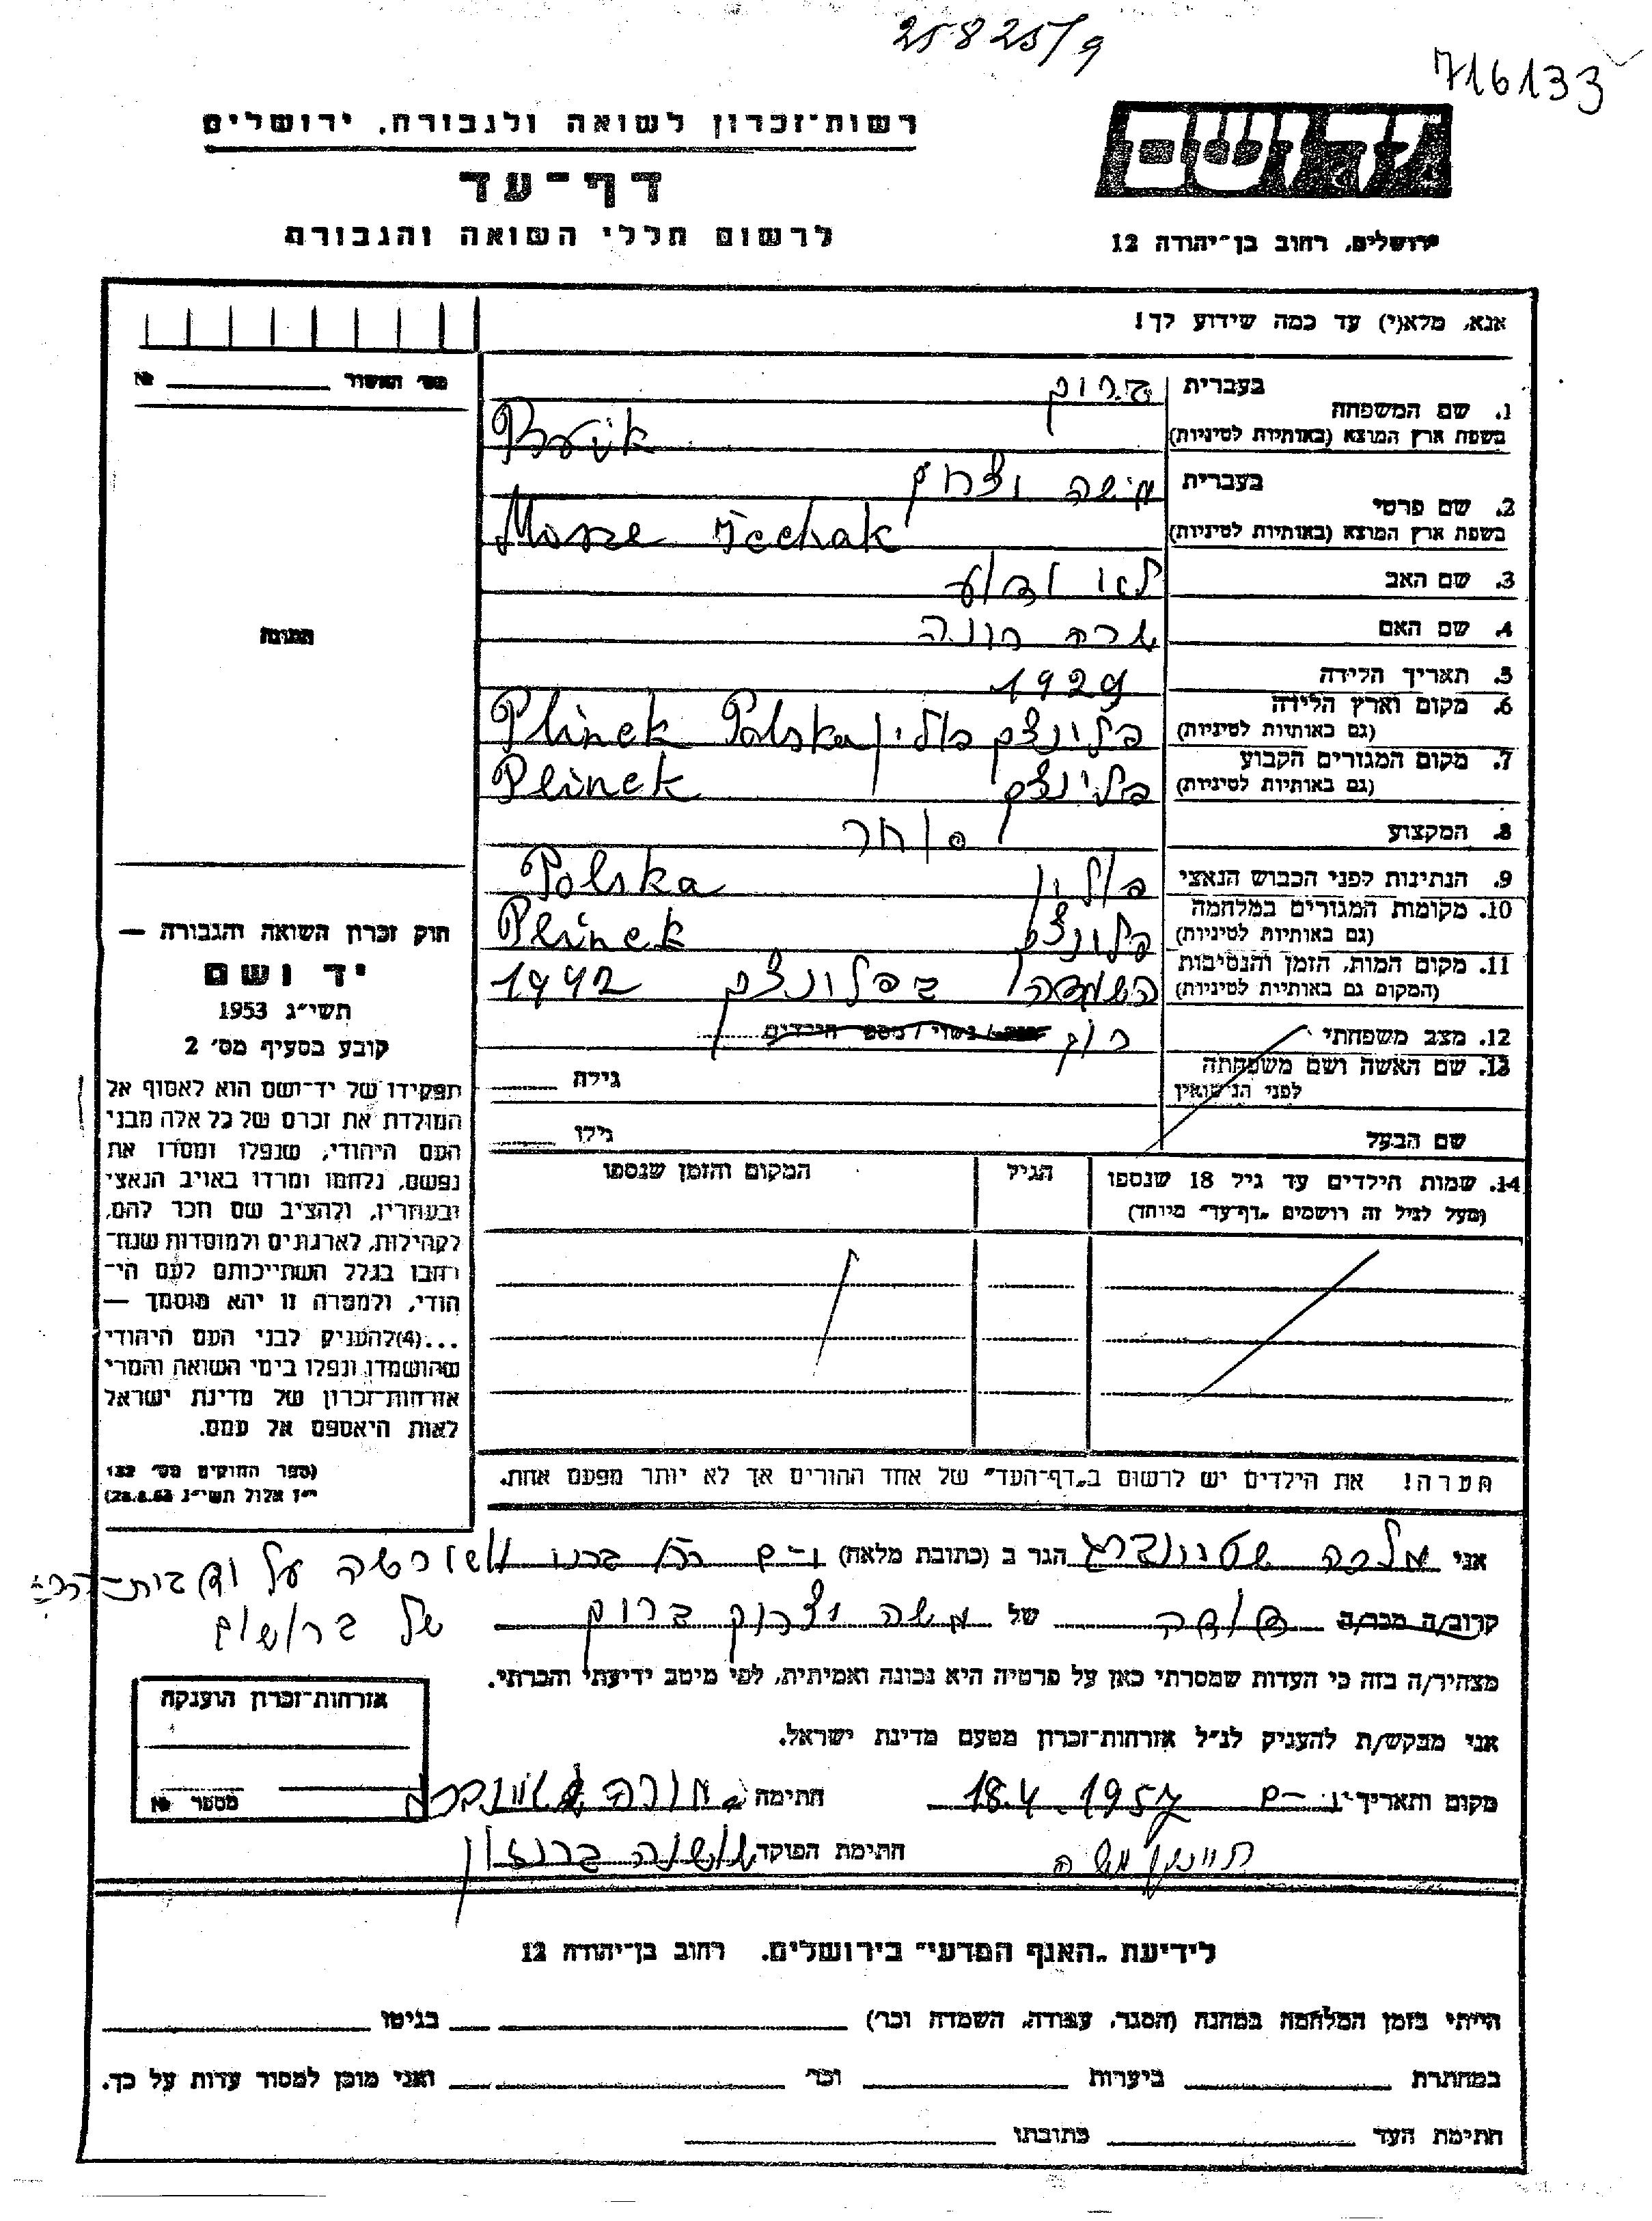 25825/9
716133
רשות־זכרון לשואה ולגבורה, ירושלים
דף־עד
לרשום חללי השואה והגבורה
יד ושם
ירושלים, רחוב בן־יהודה 12
אנא, מלא(י) עד כמה שידוע לך!
מס׳ האשור № 
1. שם המשפחה
בעברית ברוק
בשפת ארץ המוצא (באותיות לטיניות)
2. שם פרטי
בעברית משה יצחק
בשפת ארץ המוצא (באותיות לטיניות) Mosze
3. שם האב לא ידוע
4. שם האם שרה
5. תאריך הלידה 1929
6. מקום וארץ הלידה
(גם באותיות לטיניות) פלינצק פולין Plinck Polska
7. מקום המגורים הקבוע
(גם באותיות לטיניות) פלינצק Plinck
8. המקצוע
9. הנתינות לפני הכבוש הנאצי פולין Polska
10. מקומות המגורים במלחמה
(גם באותיות לטיניות) Plinck
11. מקום המות, הזמן והנסיבות
(המקום גם באותיות לטיניות) השמדה בפלונצק 1942
12. מצב משפחתי רוק
13. שם האשה ושם משפחתה
לפני הנישואין
גילה
שם הבעל
גילו
14. שמות הילדים עד גיל 18 שנספו
(מעל לגיל זה רושמים „דף־עד״ מיוחד)
הגיל
המקום והזמן שנספו
הערה! את הילדים יש לרשום ב„דף־העד״ של אחד ההורים אך לא יותר מפעם אחת.
התמונה
חוק זכרון השואה והגבורה —
יד ושם
תשי״ג 1953
קובע בסעיף מס׳ 2
תפקידו של יד־ושם הוא לאסוף אל
המולדת את זכרם של כל אלה מבני
העם היהודי, שנפלו ומסרו את
נפשם, נלחמו ומרדו באויב הנאצי
ובעוזריו, ולהציב שם וזכר להם,
לקהילות, לארגונים ולמוסדות שנח־
רבו בגלל השתייכותם לעם הי־
הודי, ולמטרה זו יהא מוסמך —
...(4)להעניק לבני העם היהודי
שהושמדו ונפלו בימי השואה והמרי
אזרחות־זכרון של מדינת ישראל
לאות היאספם אל עמם.
(ספר החוקים מס׳ 132
י״ז אלול תשי״ג 28.8.53)
אני מלכה הגר ב (כתובת מלאה) י-ם
על יד בית־
של
קרוב/ה מכר/ה דודה של משה יצחק ברוק
מצהיר/ה בזה כי העדות שמסרתי כאן על פרטיה היא נכונה ואמיתית, לפי מיטב ידיעתי והכרתי.
אני מבקש/ת להעניק לנ״ל אזרחות־זכרון מטעם מדינת ישראל.
מקום ותאריך י-ם 18.4.1957 חתימה
חתימת הפוקד
אזרחות־זכרון הוענקה
מספר №
לידיעת „האגף המדעי״ בירושלים, רחוב בן־יהודה 12
הייתי בזמן המלחמה במחנה (הסגר, עבודה, השמדה וכו׳) בגיטו
במחתרת ביערות וכו׳ ואני מוכן למסור עדות על כך.
חתימת העד כתובתו